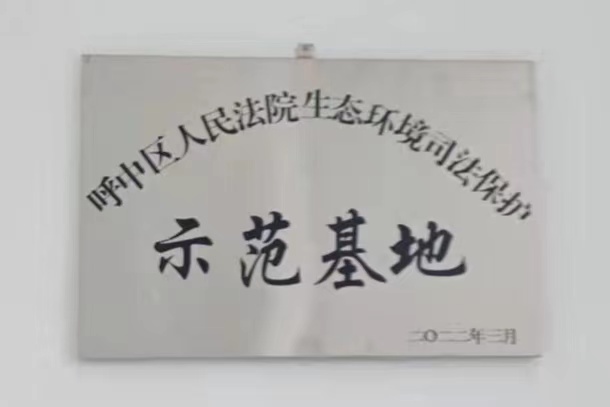 呼中区人民法院生态环境司法保护
示范基地
二〇二二年三月